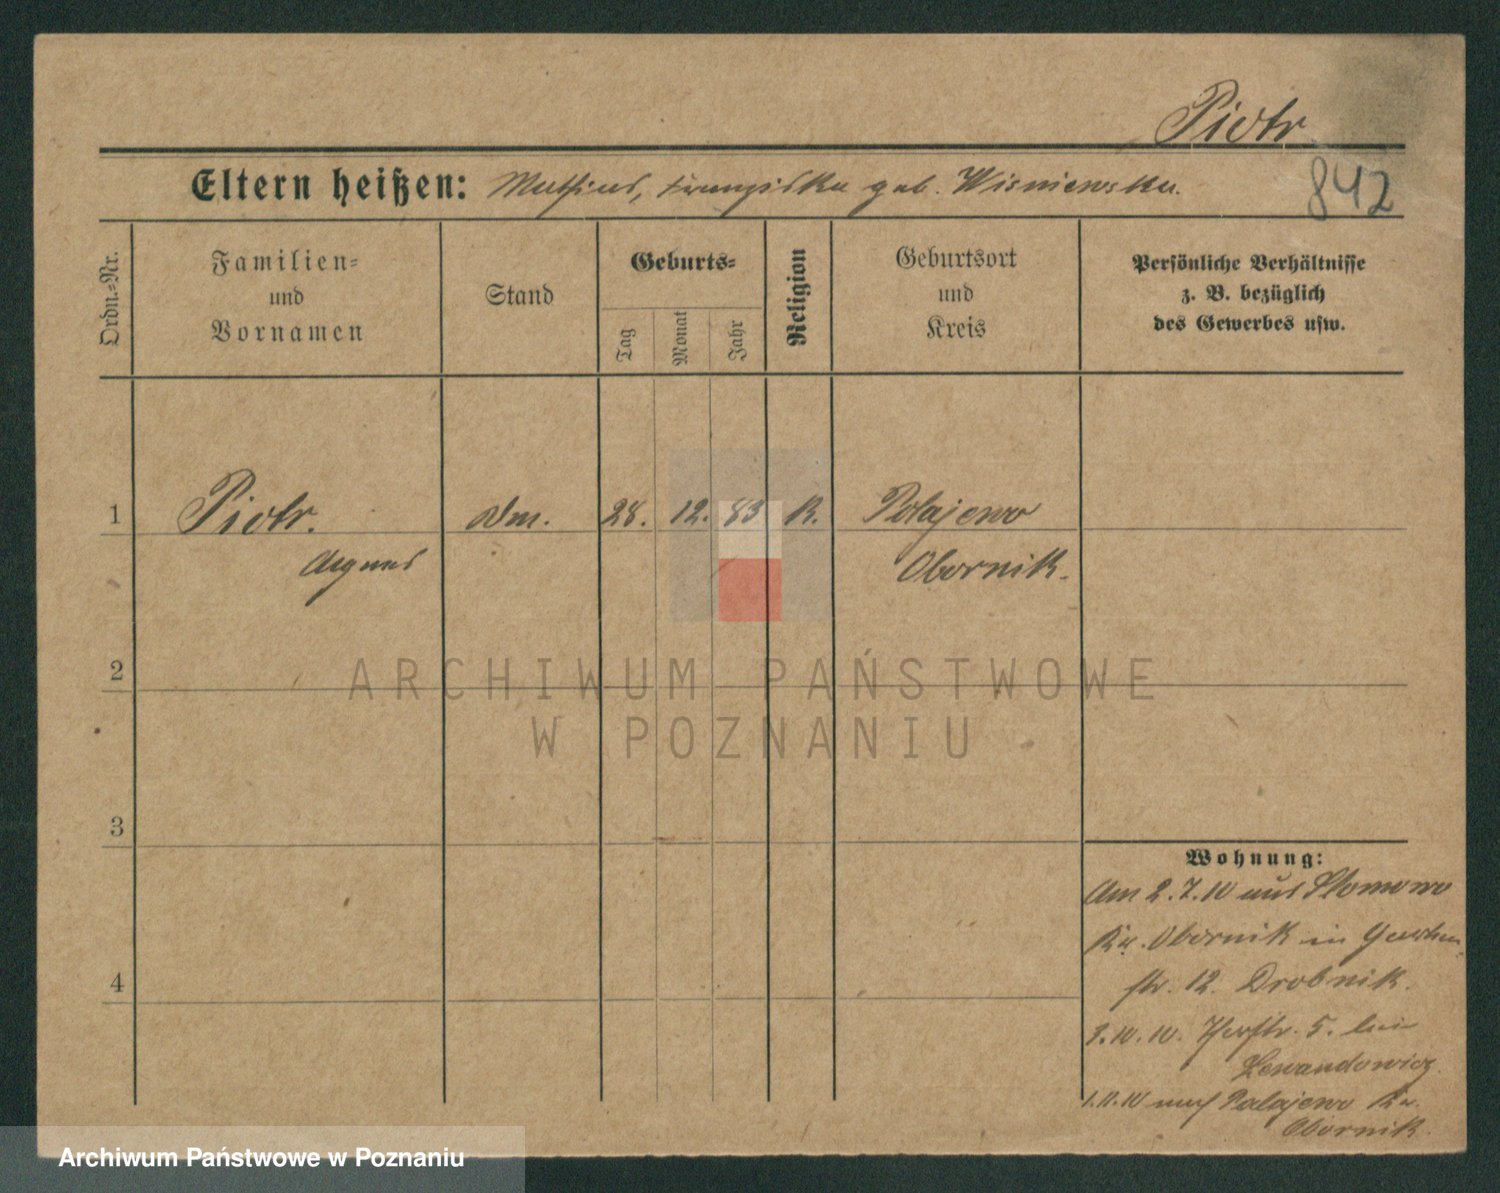 Piotr
842
Eltern heißen: Mathias, Franziska geb. Wisniewska.
Ordn.-Nr.
Familien-
und
Vornamen
Stand
Geburts-
Tag
Monat
Jahr
Religion
Geburtsort
und
Kreis
Persönliche Verhältnisse
z. B. bezüglich
des Gewerbes usw.
1 Piotr. 28. 12. 83 K. Polajewo
Agnes Obornik.
2
3
4
Wohnung:
Am 2.7.10 aus Slomowo
Kr. Obornik in
str. 12. Drobnik.
3.10.10. 5. bei
Lewandowicz.
1.11.10 nach Polajewo Kr.
Obornik.
ARCHIWUM PAŃSTWOWE
W POZNANIU
Archiwum Państwowe w Poznaniu